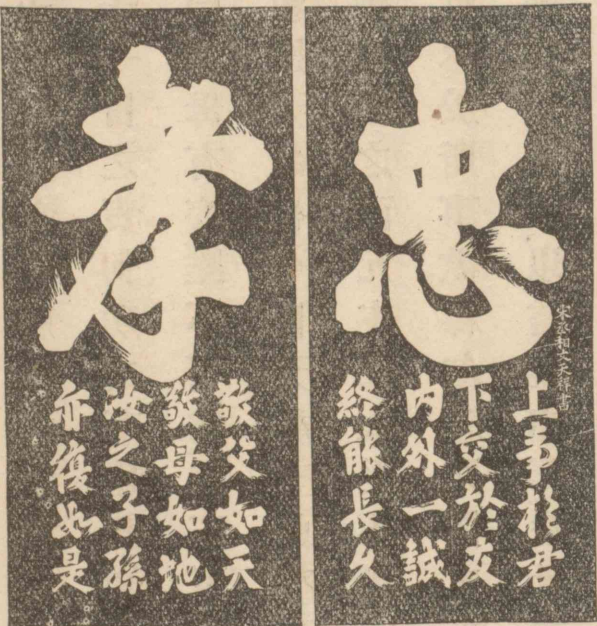 忠
宋丞相文天祥書
上事於君
下交於友
內外一誠
終能長久
孝
敬父如天
敬母如地
汝之子孫
亦復如是